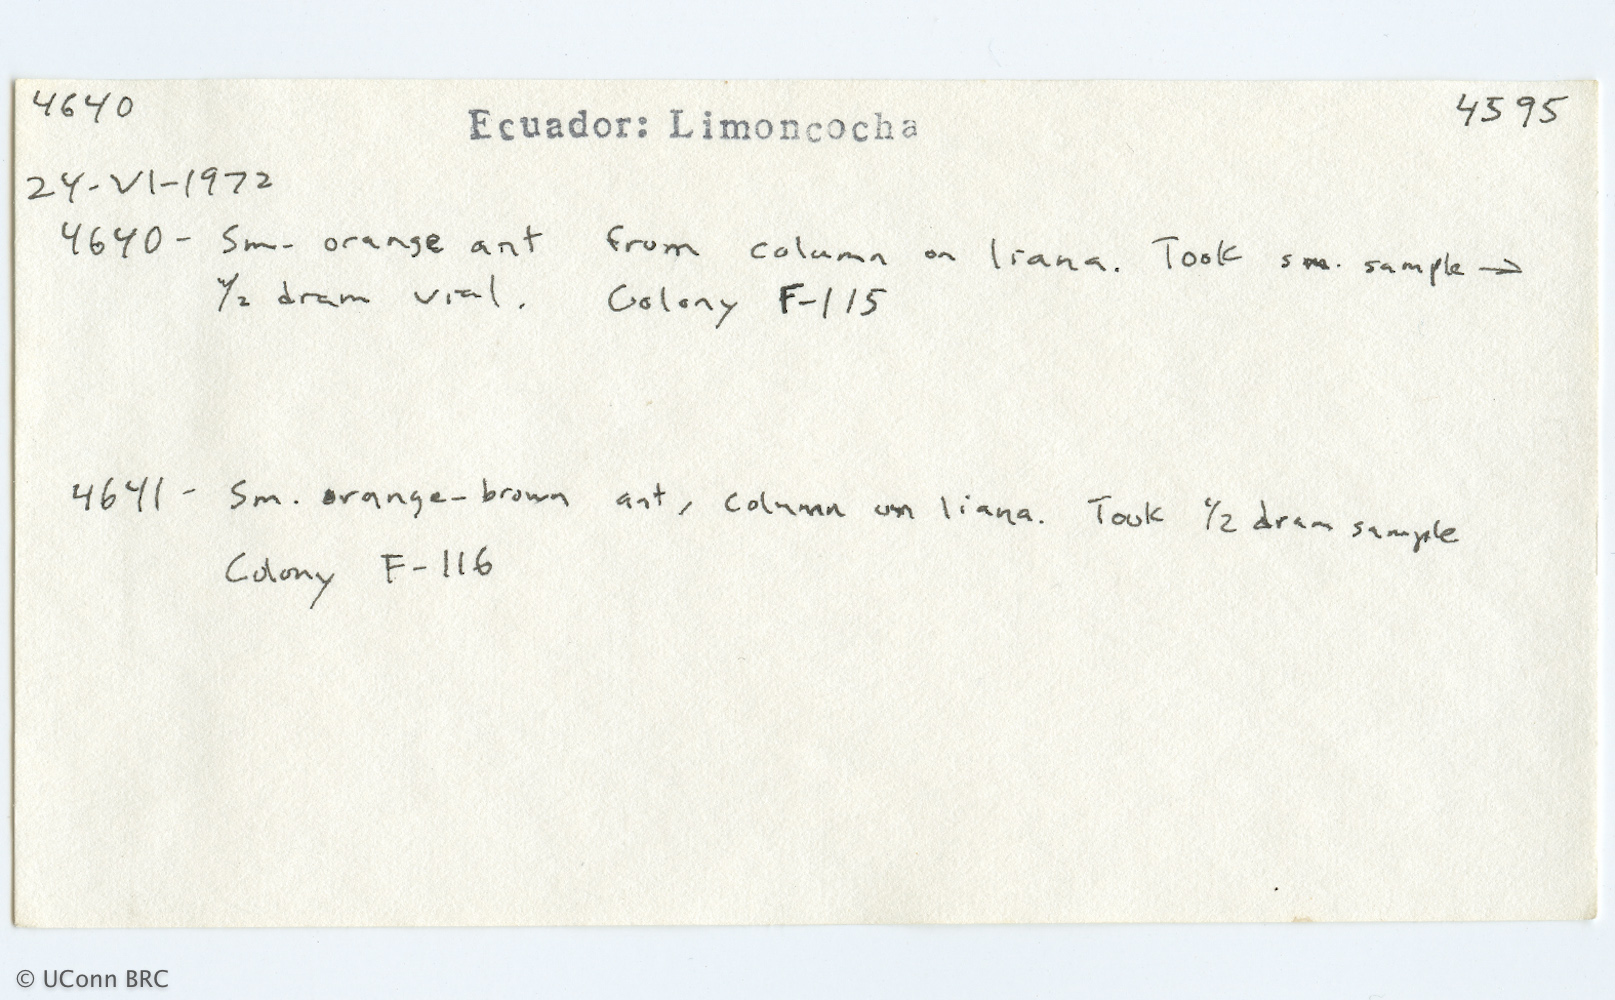 4640 Ecuador: Limoncocha 4595
24-VI-1972
4640 - Sm- orange ant from column on liana. Took sm. sample →
1/2 dram vial. Colony F-115
4641 - Sm. orange-brown ant, column on liana. Took 1/2 dram sample
Colony F-116
© UConn BRC